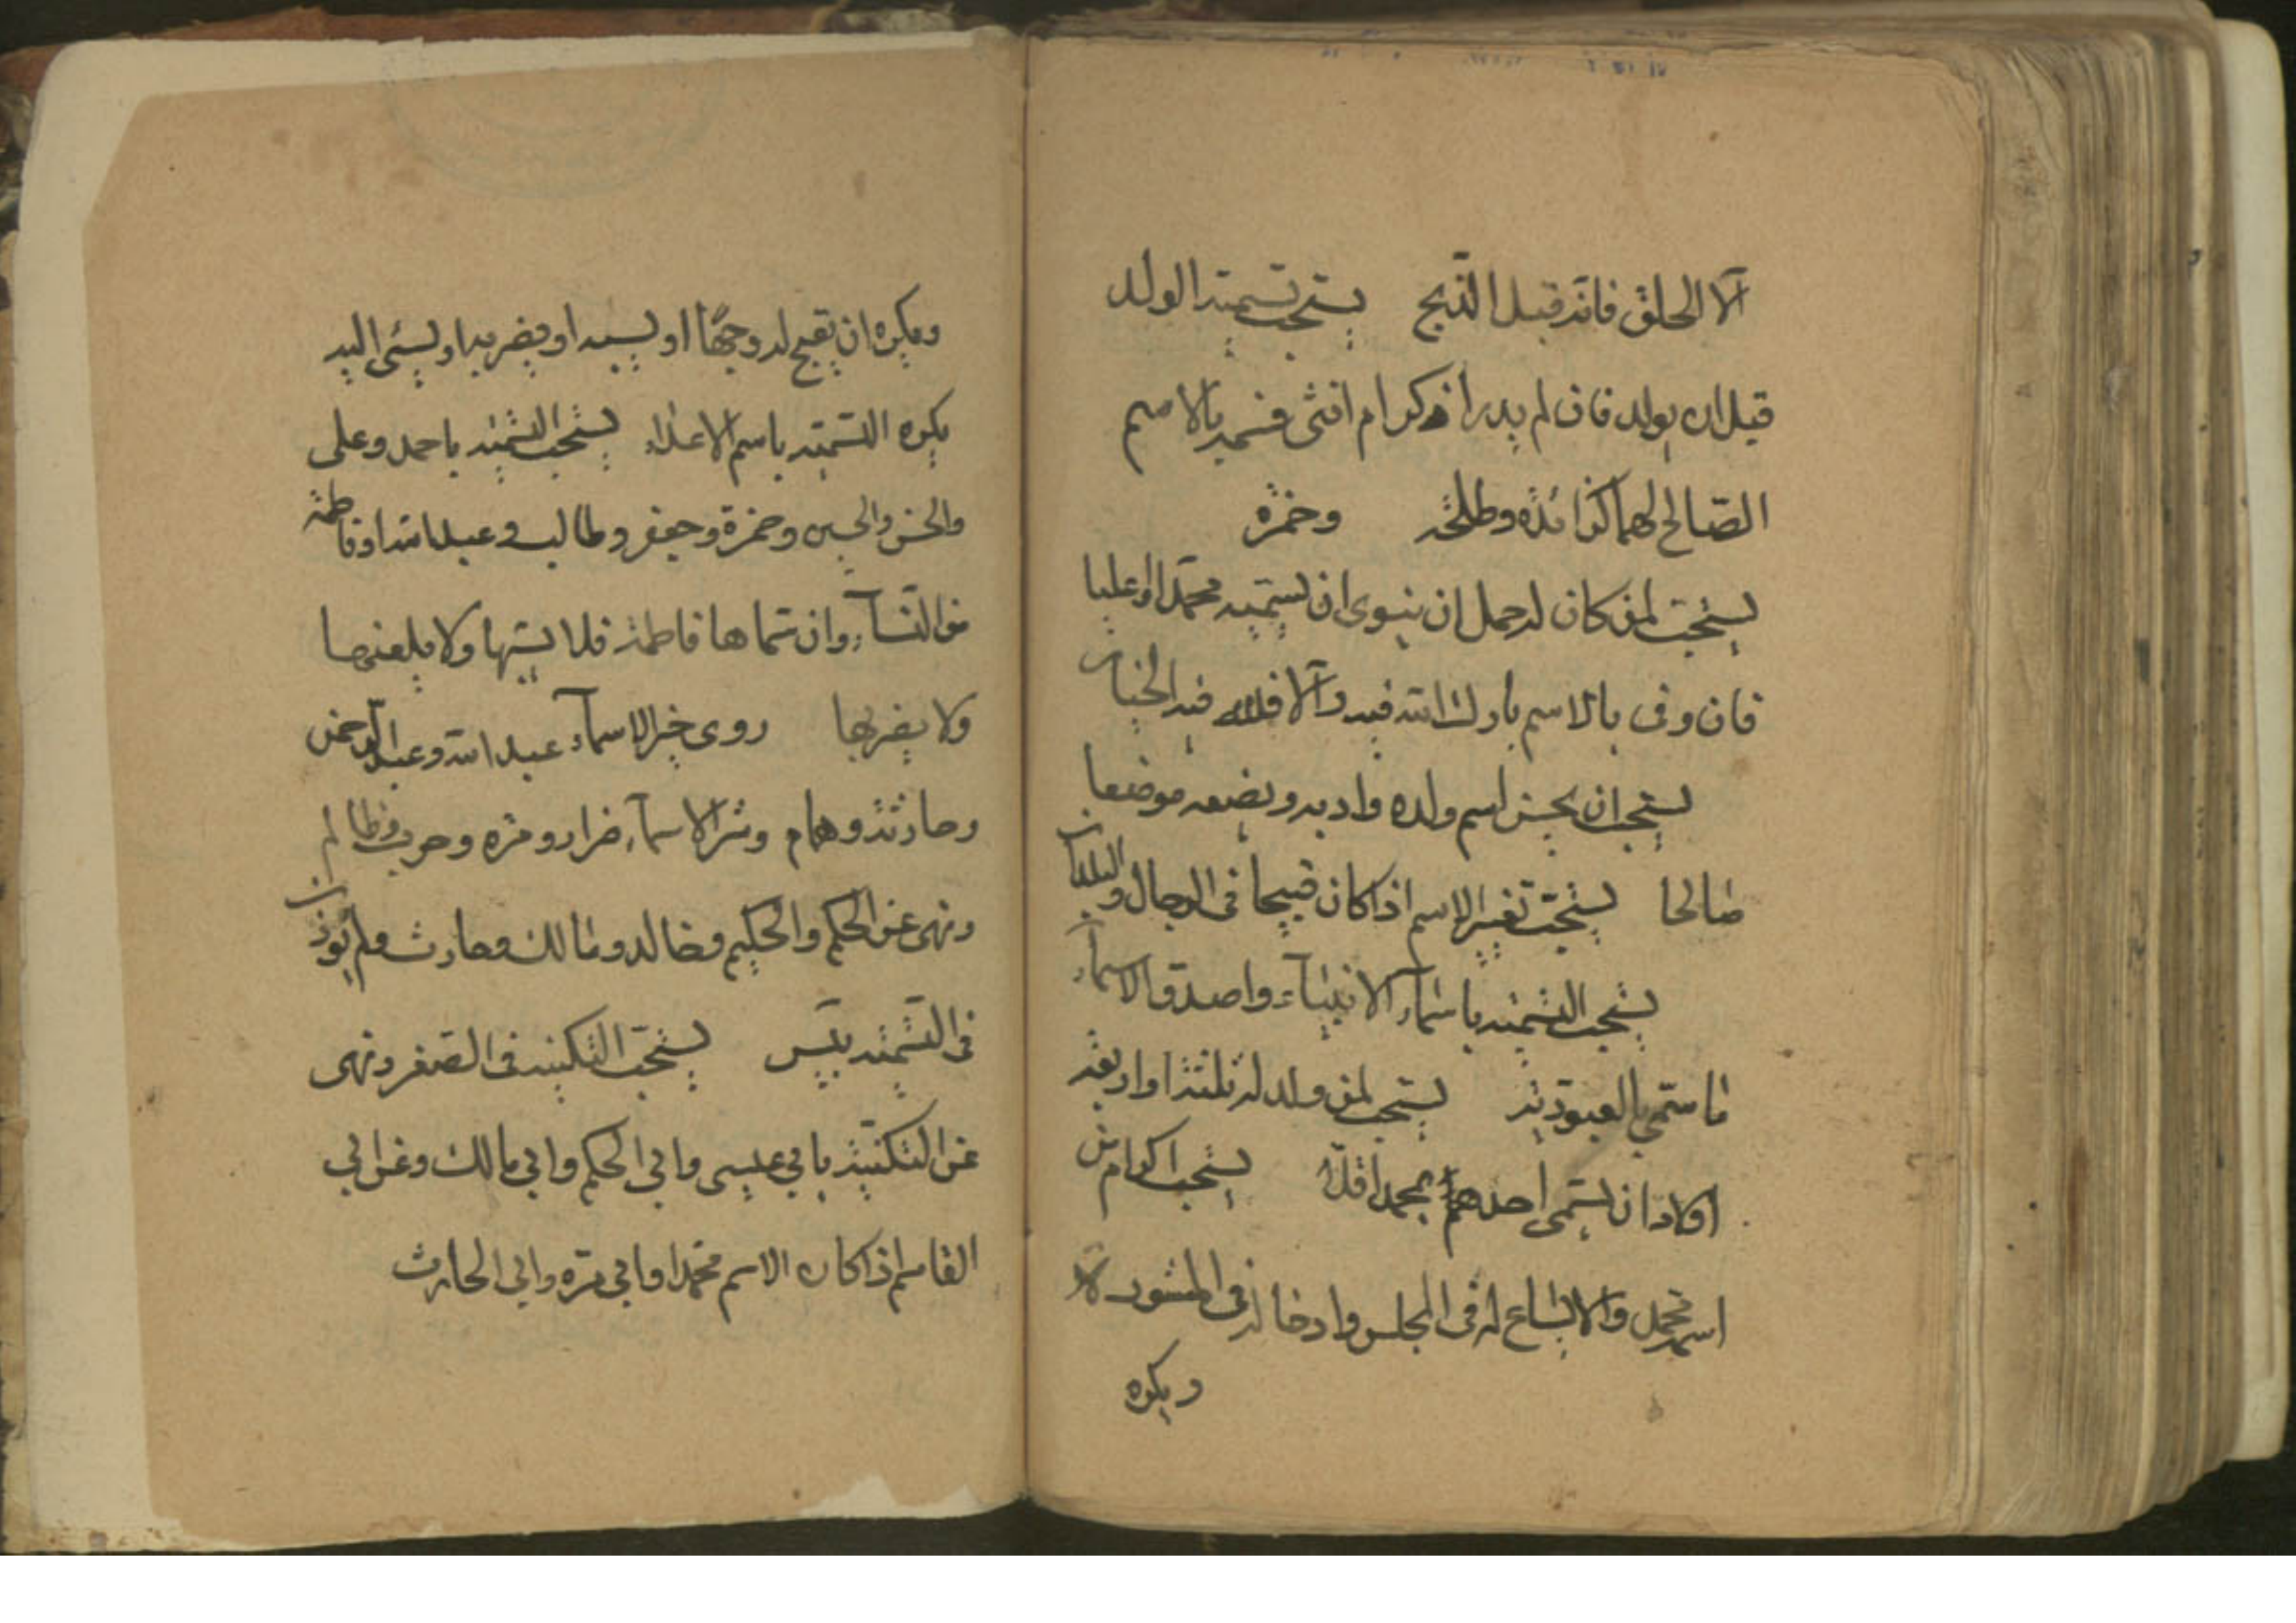 الّا الحلق فانّه قبل الذّبح يستحب تسمية الولد
قبل ان يولد فان لم يدر أذكر ام انثى فسمه بالاسم
الصّالح لهما كزائدة وطلحة وحمزة
يستحب لمن كان له حمل ان ينوى ان يسمّيه محمّدا او عليا
فان وفى بالاسم بارك الله فيه والّا فلله فيه الخيار
يستحب ان يحسن اسم ولده وادبه ويضعه موضعا
صالحا يستحب تغيير الاسم اذا كان قبيحا فى الرجال والبلدان
يستحب التسمية باسمآء الانبيآء واصدق الاسمآء
ما سمّى بالعبوديّة يستحب لمن ولد له ثلثة او اربعة
اولاد ان يسمّى احدهم بمحمد اقلّا يستحب اكرام من
اسمه محمد والاتساع له فى المجلس وادخاله فى المشورة
ويكره
ويكره ان يقبح له وجهًا او يسبه او يضربه او يسئ اليه
يكره التسمية باسم الاعداء يستحب التسمية باحمد وعلى
والحسن والحسين وحمزة وجعفر وطالب وعبد الله او فاطمة
من النّسآء وان سماها فاطمة فلا يسبها ولا يلعنها
ولا يضربها روى خير الاسمآء عبد الله وعبد الرّحمن
وحارثة وهمام وشر الاسمآء ضرار ومره وحرب وظالم
ونهى عن الحكم والحكيم وخالد ومالك وحارث ولم يوذن
فى التسمية بيس يستحب التكنية فى الصغر ونهى
عن التكنية بابي عيسى وابي الحكم وابي مالك وعن ابي
القاسم اذا كان الاسم محمّدا وابي مرّه وابي الحارث